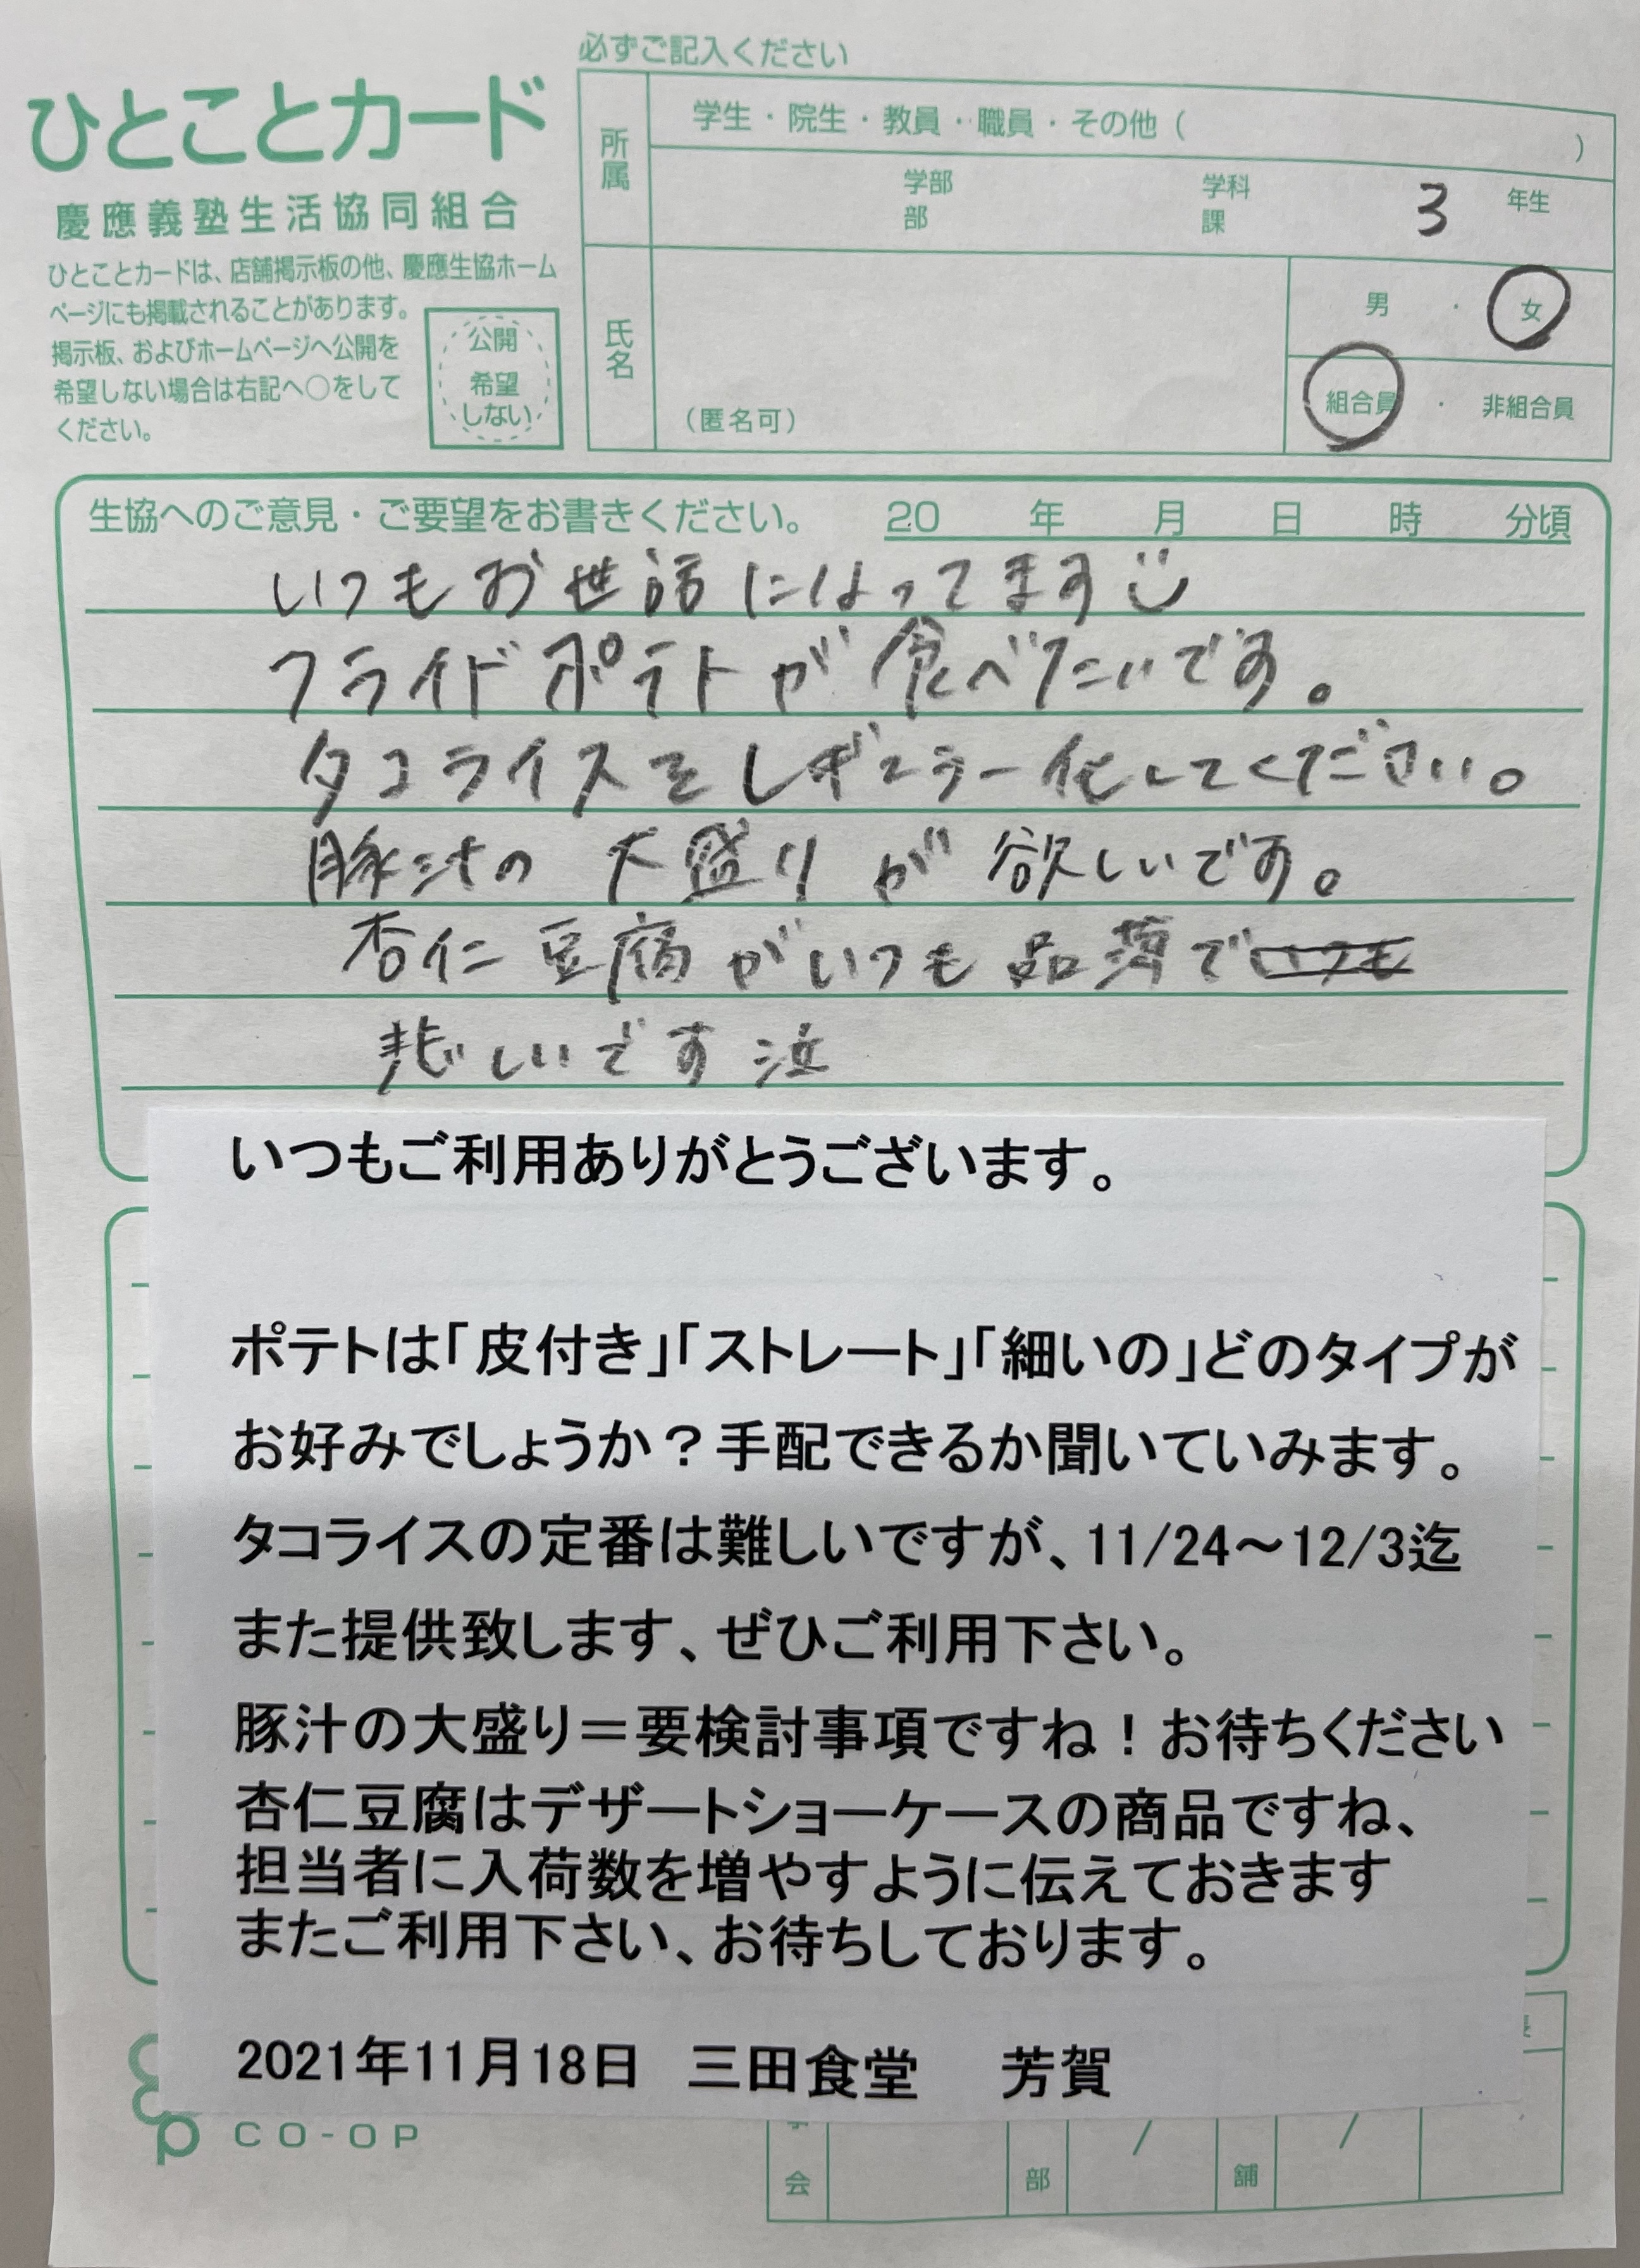 必ずご記入ください
ひとことカード
慶應義塾生活協同組合
ひとことカードは、店舗掲示板の他、慶應生協ホーム
ページにも掲載されることがあります。
掲示板、およびホームページへ公開を
希望しない場合は右記へ○をして
ください。
公開
希望
しない
所属
学生・院生・教員・職員・その他（　　　）
学部 学科 3 年生
部 課
氏名
（匿名可）
男 ・ 女
組合員 ・ 非組合員
生協へのご意見・ご要望をお書きください。 20 年 月 日 時 分頃
いつもお世話になってます
フライドポテトが食べたいです。
タコライスをレギュラー化してください。
豚汁の大盛りが欲しいです。
杏仁豆腐がいつも品薄でいつも
悲しいです泣
いつもご利用ありがとうございます。
ポテトは「皮付き」「ストレート」「細いの」どのタイプが
お好みでしょうか？手配できるか聞いていみます。
タコライスの定番は難しいですが、11/24～12/3迄
また提供致します、ぜひご利用下さい。
豚汁の大盛り＝要検討事項ですね！お待ちください
杏仁豆腐はデザートショーケースの商品ですね、
担当者に入荷数を増やすように伝えておきます
またご利用下さい、お待ちしております。
2021年11月18日 三田食堂 芳賀
CO-OP
会 部 / 舗 /